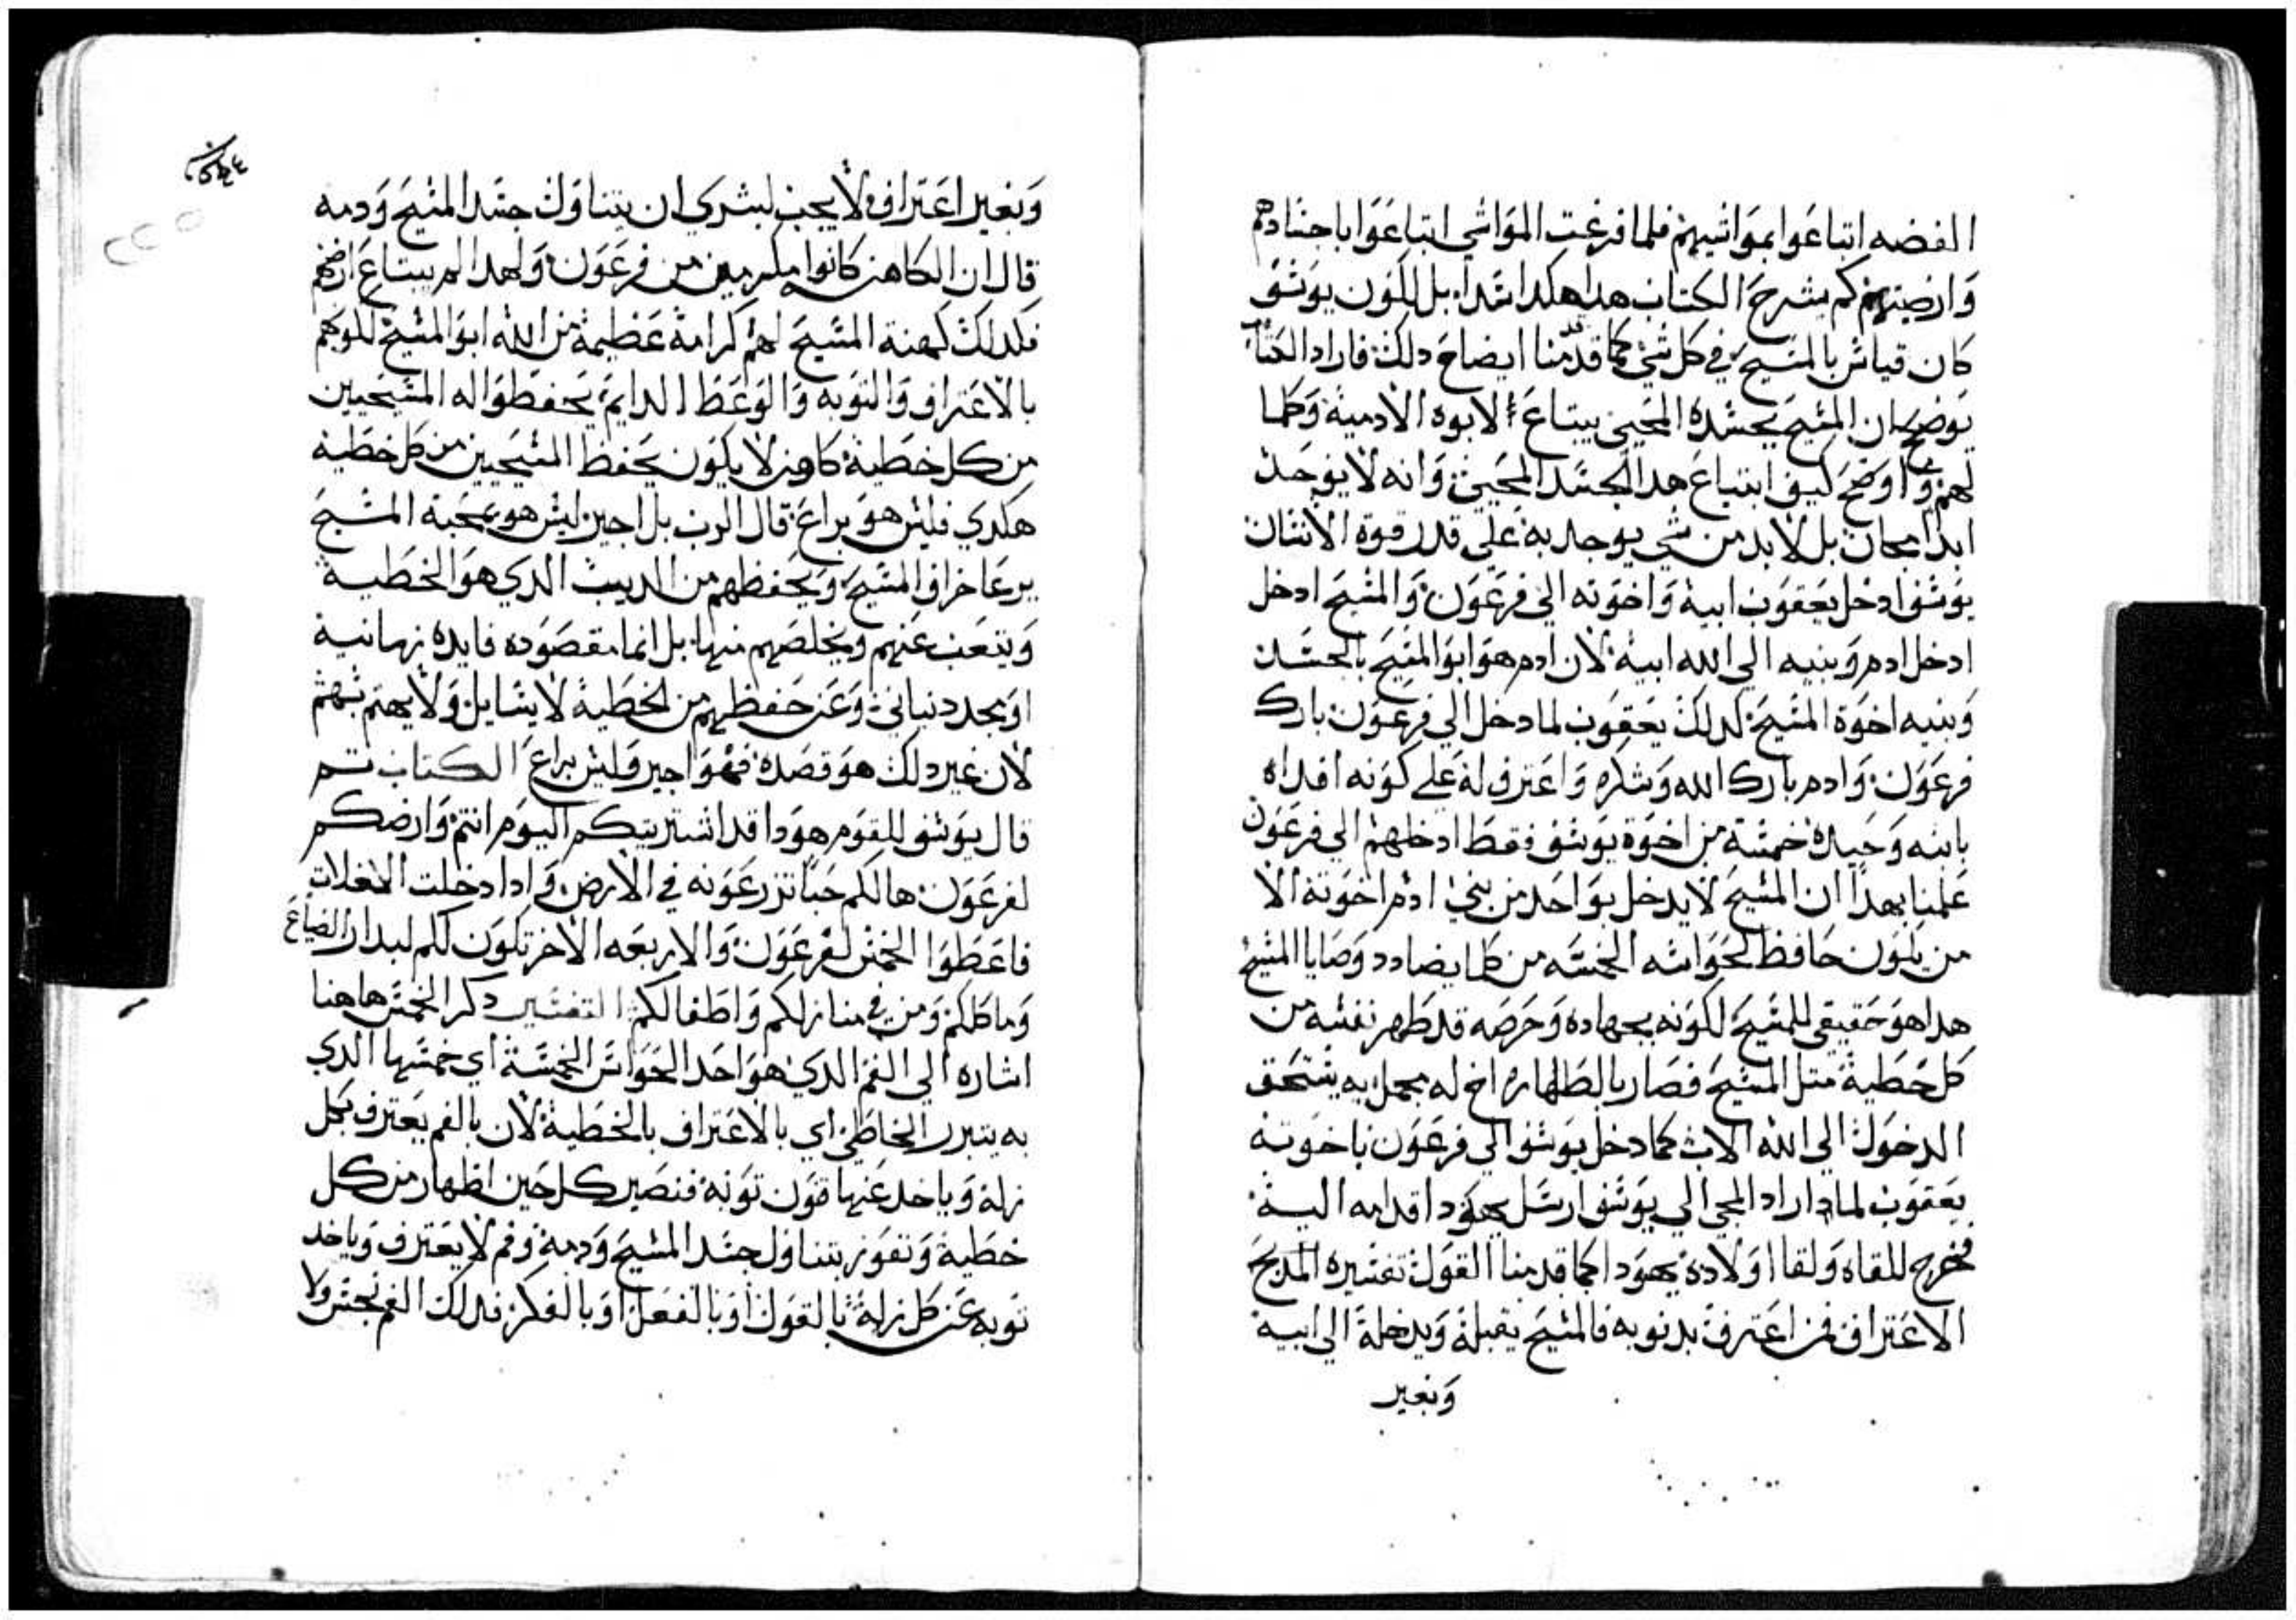 الفضه ابتاعوا بمواشيهم فلما فرغت المواشي ابتاعوا باجسادهم
وارضيتهم كم يشرح الكتاب هدا هكدا سدا بل لكون يوسف
كان قياس بالمسيح في كل شي كما قدمنا ايضاح دلك فاراد الكتاب
يوضح ان المسيح بجسده المحيي يبتاع الابوه الادمية وكلما
لهم واوضح كيف ابتياع هدا الجسد المحيي وانه لا يوجد
ابدا مجان بل لابد من شي يوجد به علي قدر قوة الانسان
يوسف ادخل يعقوب ابيه واخوته الي فرعون والمسيح ادخل
ادخل ادم وبنيه الي الله ابيه لان ادم هو ابو المسيح بالجسد
وبنيه اخوة المسيح كدلك يعقوب لما دخل الي فرعون بارك
فرعون وادم بارك الله وشكره واعترف له علي كونه افداه
بابنه وحيده خمسة من اخوة يوسف فقط ادخلهم الي فرعون
علمنا بهدا ان المسيح لا يدخل بواحد من بني ادم اخوته الا
من يكون حافظ لحواسه الخمسه من كلما يضادد وصايا المسيح
هدا هو حقيقي للمسيح لكونه بجهاده وحرصه قد طهر نفسه من
كل خطية متل المسيح فصار بالطهاره اخ له بجمل به يستحق
الدخول الي الله الاب كما دخل يوسف الي فرعون باخوته
يعقوب لما اراد المجي الي يوسف ارسل يهودا قدامه اليه
فخرج للقاه ولقا اولاده يهودا كما قدمنا القول تفسيره المديح
الاعتراف فمن اعترف بدنوبه فالمسيح يقبله ويدخله الي ابيه
وبغير
وبغير اعتراف لا يجب لبشري ان يتناول جسد المسيح ودمه
قال ان الكاهنه كانوا مكرمين من فرعون ولهدا لم يبتاع ارضهم
فكدلك كهنة المسيح لهم كرامة عظيمة من الله ابو المسيح لكونهم
بالاعتراف والتوبه والوعظ الدايم يحفظوا له المسيحيين
من كل خطية كاهن لا يكون يحفظ المسيحيين من كل خطيه
هكدي فليس هو براع قال الرب بل اجير ليس هو بمحبة المسيح
يرعا خراف المسيح ويحفظهم من الديب الدي هو الخطية
ويتعب عنهم ويخلصهم منها بل انما مقصوده فايده زمانية
او مجد دنياني وعن حفظهم من الخطية لا يسايل ولا يهتم بهم
لان غير دلك هو قصده فهو اجير وليس براع الكتاب تم
قال يوسف للقوم هودا قد اشتريتكم اليوم انتم وارضكم
لفرعون ها لكم حبا تزرعونه في الارض وادا دخلت الغلات
فاعطوا الخمس لفرعون والاربعه الاخر تكون لكم لبدار الضياع
وماكلكم ومن في منازلكم واطفالكم التفسير دكر الخمس هاهنا
اشاره الي الفم الدي هو احد الحواس الخمسة اي خمسها الدي
به يتبرر الخاطي اي بالاعتراف بالخطية لان بالفم يعترف بكل
زلة وياخد عنها قون توبة فنصير كل حين اطهار من كل
خطية ونفوز بتناول جسد المسيح ودمه وفم لا يعترف وياخد
توبه عن كل زلة بالقول او بالفعل او بالفكر فدلك الفم نجس ولا